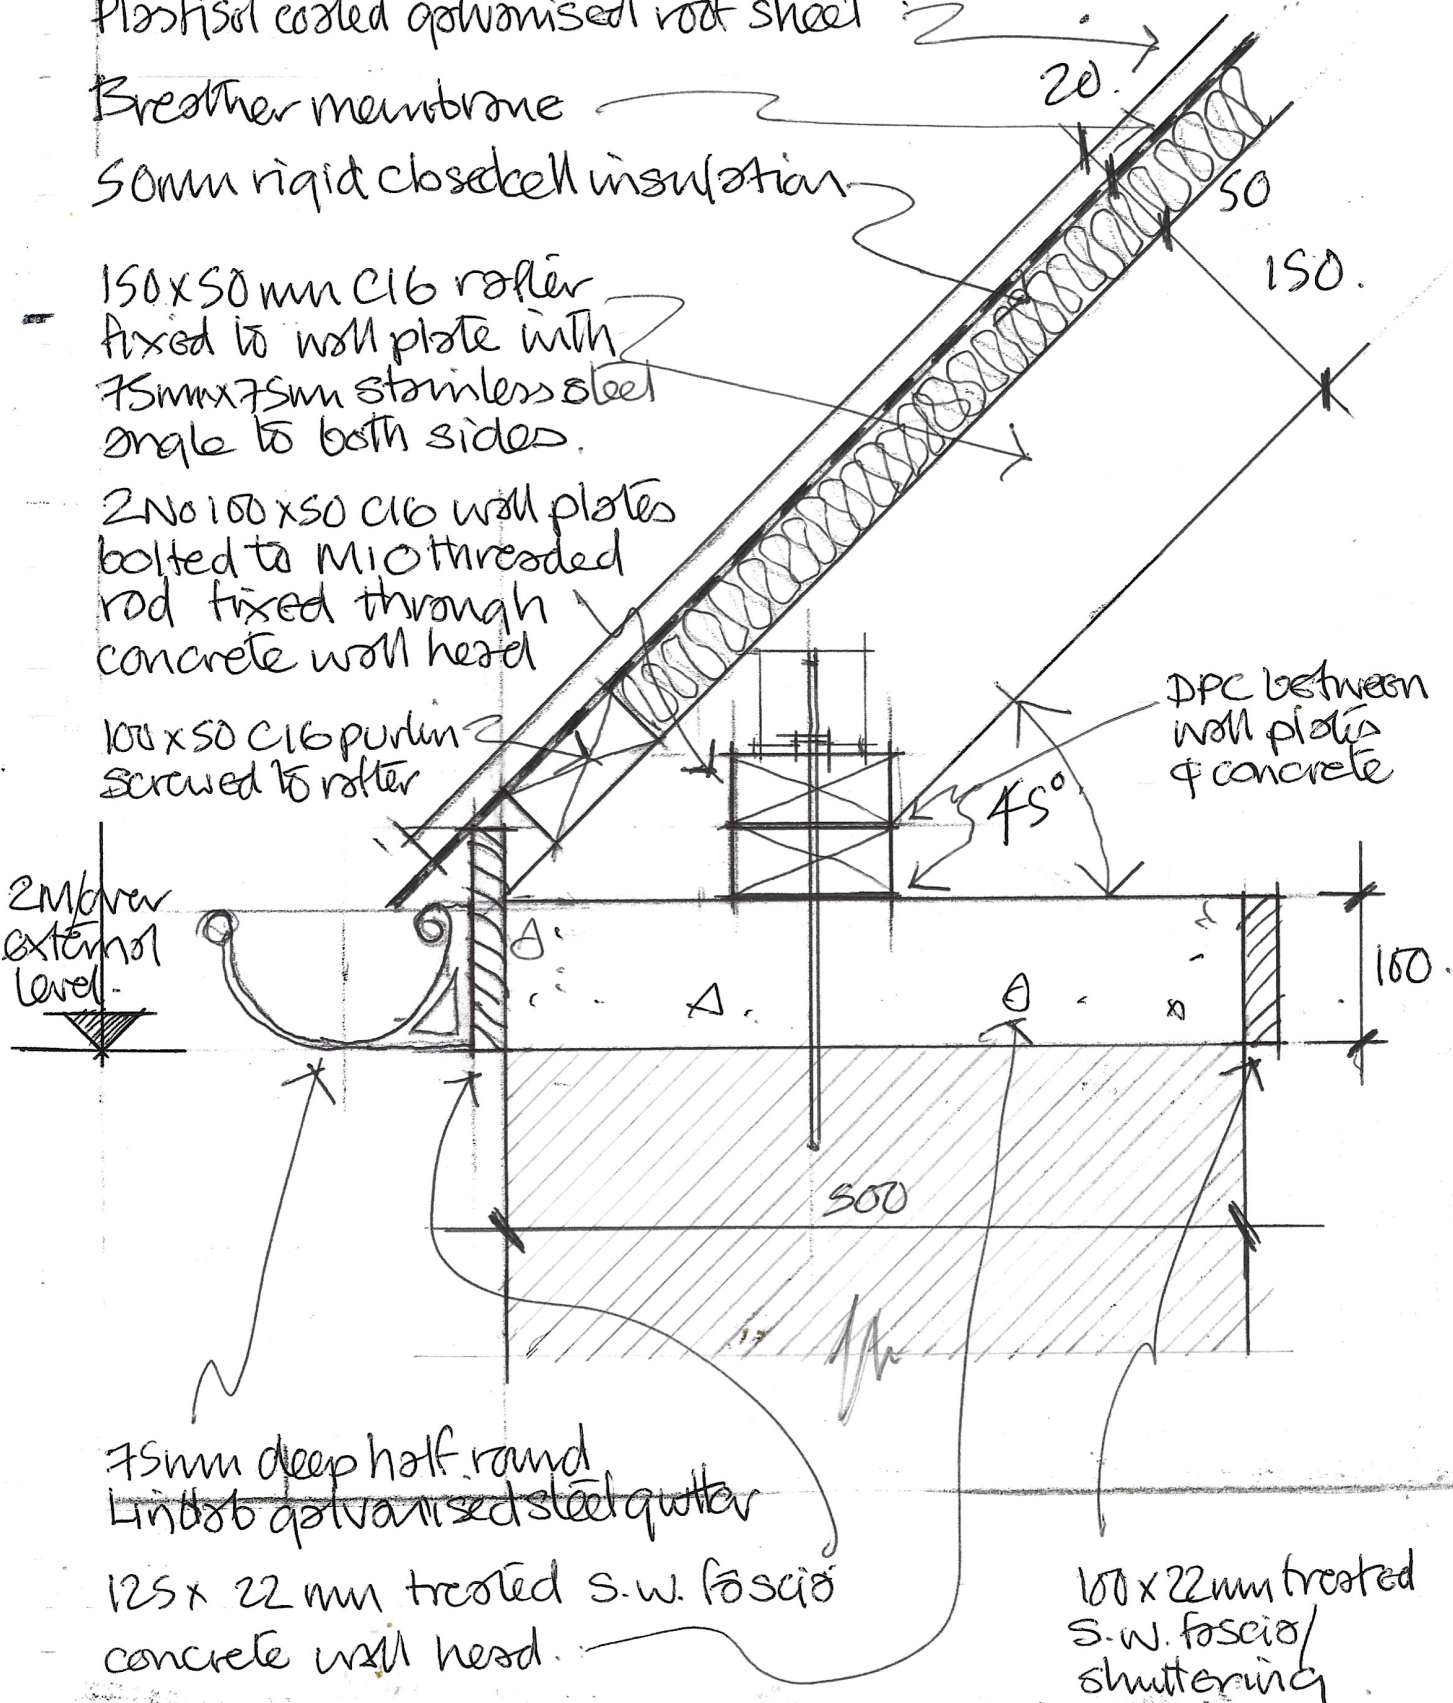 Plastisol coated galvanised roof sheet
20.
Breather membrane
50mm rigid closed cell insulation
50
150.
150x50mm C16 rafter
fixed to wall plate with
75mmx75mm stainless steel
angle to both sides.
2No 100x50 C16 wall plates
bolted to M10 threaded
rod fixed through
concrete wall head
DPC between
wall plates
& concrete
100x50 C16 purlin
screwed to rafter
45°
2M/over
external
level.
100.
500
75mm deep half round
Lindab galvanised steel gutter
125x 22mm treated s.w. fascia
concrete wall head.
100x22mm treated
s.w. fascia/
shuttering